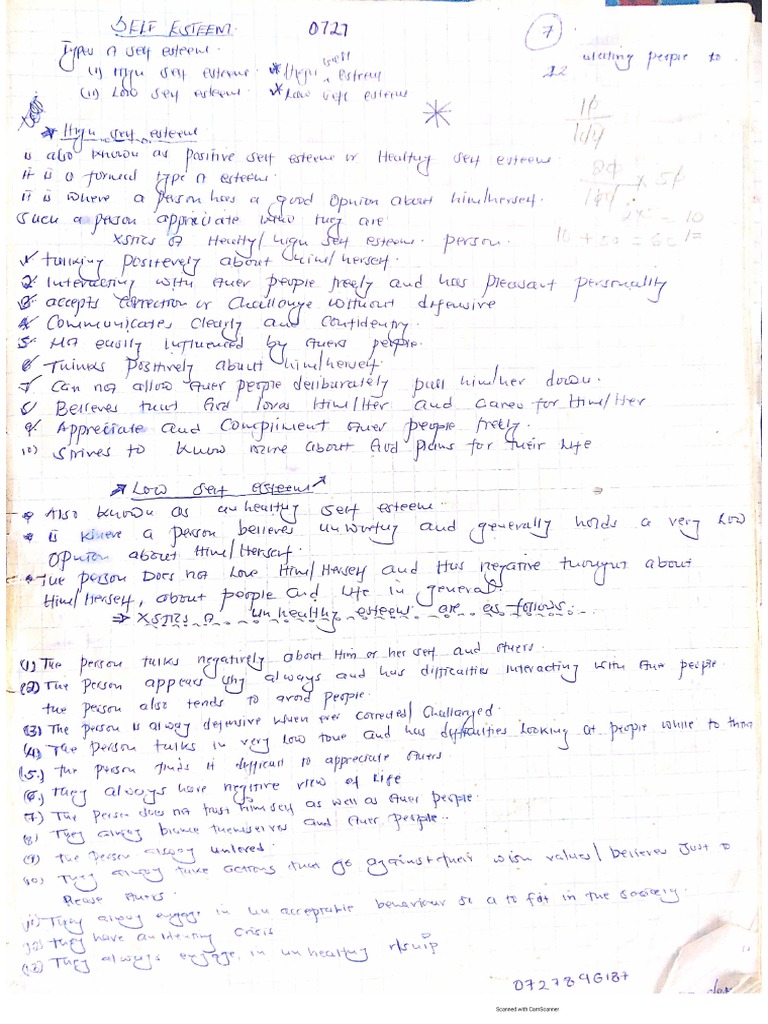 SELF ESTEEM.
0727
7
Types of self esteem.
(i) High self esteem
* High self esteem
(ii) Low self esteem
* Low self esteem
people to
12
High self esteem
is also known as positive self esteem or Healthy self esteem
it is a formed type of esteem.
it is where a person has a good opinion about him/herself.
such a person appreciate who they are
xstics of Healthy/high self esteem. person.
10 + 50 = 60
1 talking positively about him/herself.
2 Interacting with other people freely and has pleasant personality
3 accepts correction or challange without defensive
4 Communicates clearly and confidently.
5 Not easily influenced by others people.
6 Thinks positively about him/herself.
7 Can not allow other people deliberately pull him/her down.
8 Believes that God loves Him/Her and cares for Him/Her
9 Appreciate and Compliment other people freely.
10) Strives to know more about God plans for their life
Low self esteem
* Also known as unhealthy self esteem.
* is where a person believes unworthy and generally holds a very low
opinion about Him/Herself.
* The person Does not Love Him/Herself and Has negative thought about
Him/Herself, about people and life in general.
⇒ Xstics of unhealthy esteem are as follows:
(1) The person talks negatively about Him or her self and others.
(2) The person appears shy always and has difficulties interacting with other people.
the person also tends to avoid people.
(3) The person is alway defensive when ever corrected/challanged.
(4) The person talks in very low tone and has difficulties looking at people while to them
(5.) The person finds it difficult to appreciate others.
(6.) They always have negitive view of life
(7) The person does not trust himself as well as other people.
(8) They always blame themselves and other people..
(9) The person always unloved.
10) They always take actions that go against their wish values/believes just to
please others.
(11) They alway engage in un acceptable behaviour so a to fit in the society.
(12) They have an identity crisis
(13) They always engage in unhealthy r/ship
0727896187
Scanned with CamScanner